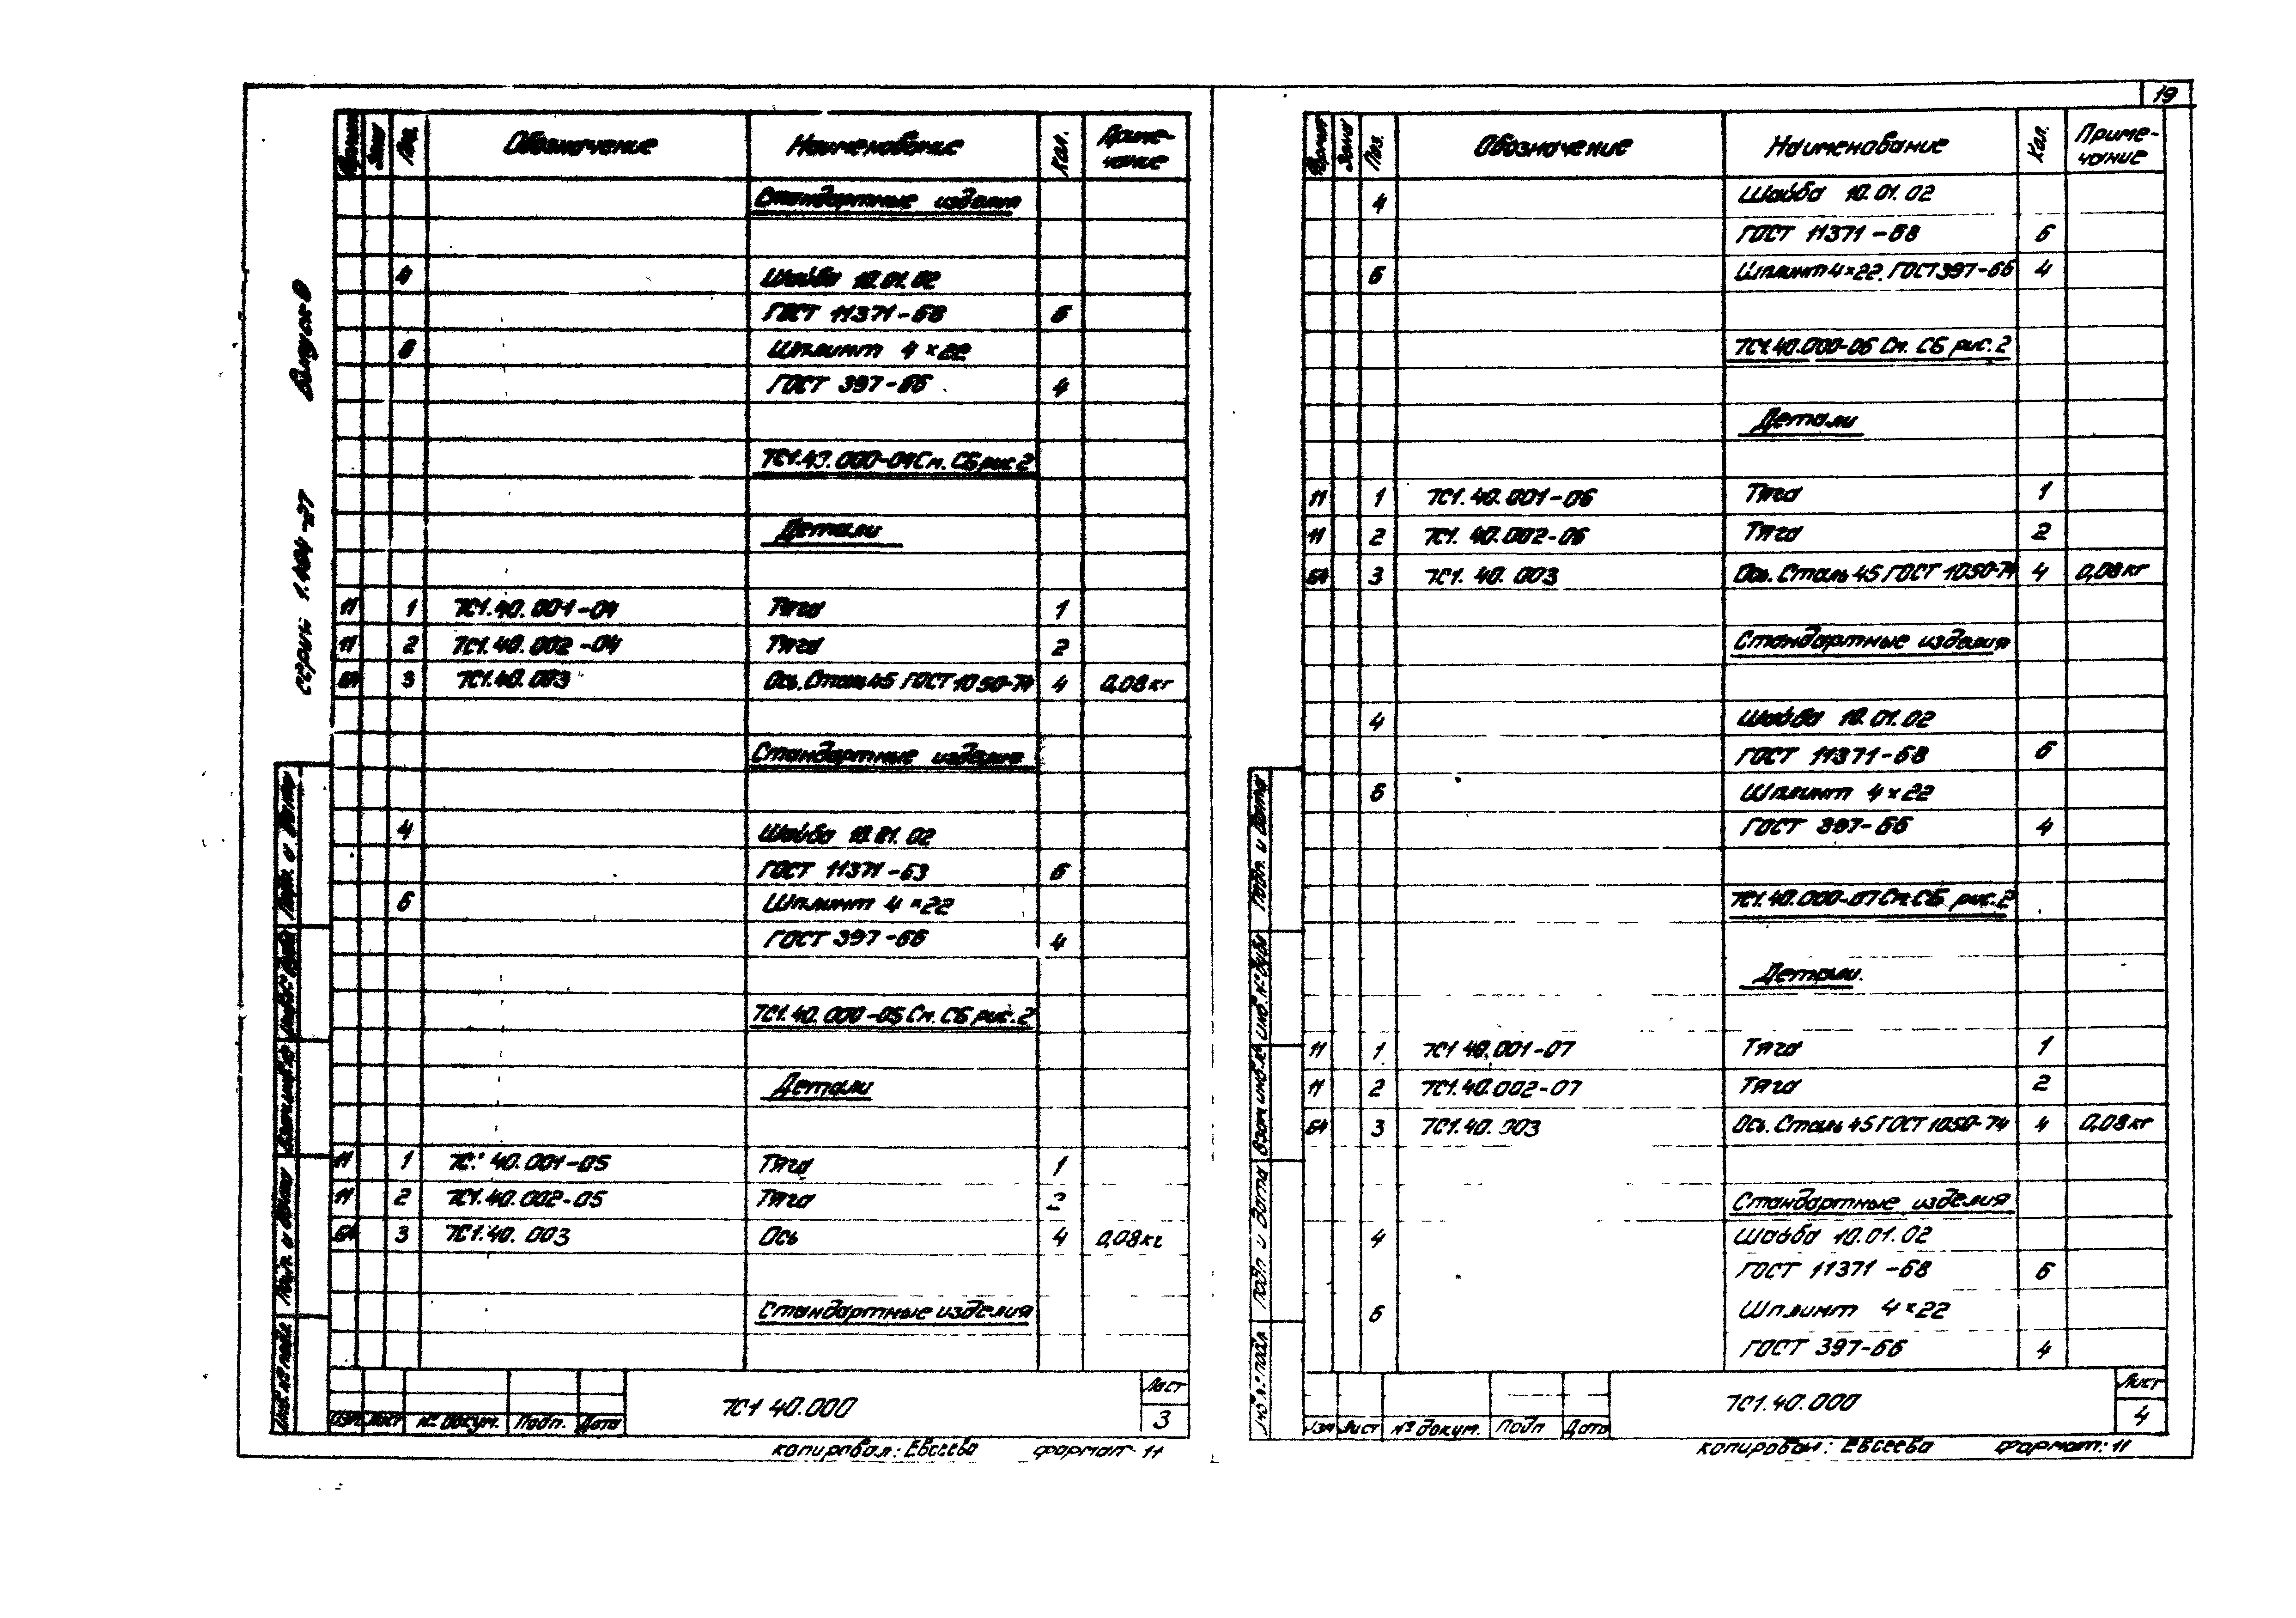 19
Выпуск 0
серия 1.494-27
Формат Зона Поз. Обозначение Наименование Кол. Приме-
чание
Стандартные изделия
4 Шайба 10.01.02
ГОСТ 11371-68 6
6 Шплинт 4×22
ГОСТ 397-66 4
7С1.40.000-04 См. СБ рис 2
Детали
11 1 7С1.40.001-04 Тяга 1
11 2 7С1.40.002-04 Тяга 2
БЧ 3 7С1.40.003 Ось. Сталь 45 ГОСТ 1050-74 4 0,08 кг
Стандартные изделия
4 Шайба 10.01.02
ГОСТ 11371-63 6
6 Шплинт 4×22
ГОСТ 397-66 4
7С1.40.000-05 См. СБ рис. 2
Детали
11 1 7С1 40.001-05 Тяга 1
11 2 7С1.40.002-05 Тяга 2
БЧ 3 7С1.40.003 Ось 4 0,08 кг
Стандартные изделия
Подп. и дата
Взам. инв. №
Подп. и дата
Инв. № подл.
Изм Лист № докум. Подп. Дата
7С1 40.000
Лист
3
копировал: Евсеева формат 11
Формат Зона Поз. Обозначение Наименование Кол. Приме-
чание
4 Шайба 10.01.02
ГОСТ 11371-68 6
6 Шплинт 4×22. ГОСТ 397-66 4
7С1.40.000-06 См. СБ рис. 2
Детали
11 1 7С1.40.001-06 Тяга 1
11 2 7С1.40.002-06 Тяга 2
БЧ 3 7С1.40.003 Ось. Сталь 45 ГОСТ 1050-74 4 0,08 кг
Стандартные изделия
4 Шайба 10.01.02
ГОСТ 11371-68 6
6 Шплинт 4×22
ГОСТ 397-66 4
7С1.40.000-07 См. СБ рис. 2
Детали.
11 1 7С1 40.001-07 Тяга 1
11 2 7С1.40.002-07 Тяга 2
БЧ 3 7С1.40.003 Ось. Сталь 45 ГОСТ 1050-74 4 0,08 кг
Стандартные изделия
4 Шайба 10.01.02
ГОСТ 11371-68 6
6 Шплинт 4×22
ГОСТ 397-66 4
Подп. и дата
Инв. № дубл
Взам инв. №
Подп и дата
Инв. № подл
Изм Лист № докум. Подп Дата
7С1.40.000
Лист
4
копировал: Евсеева Формат: 11